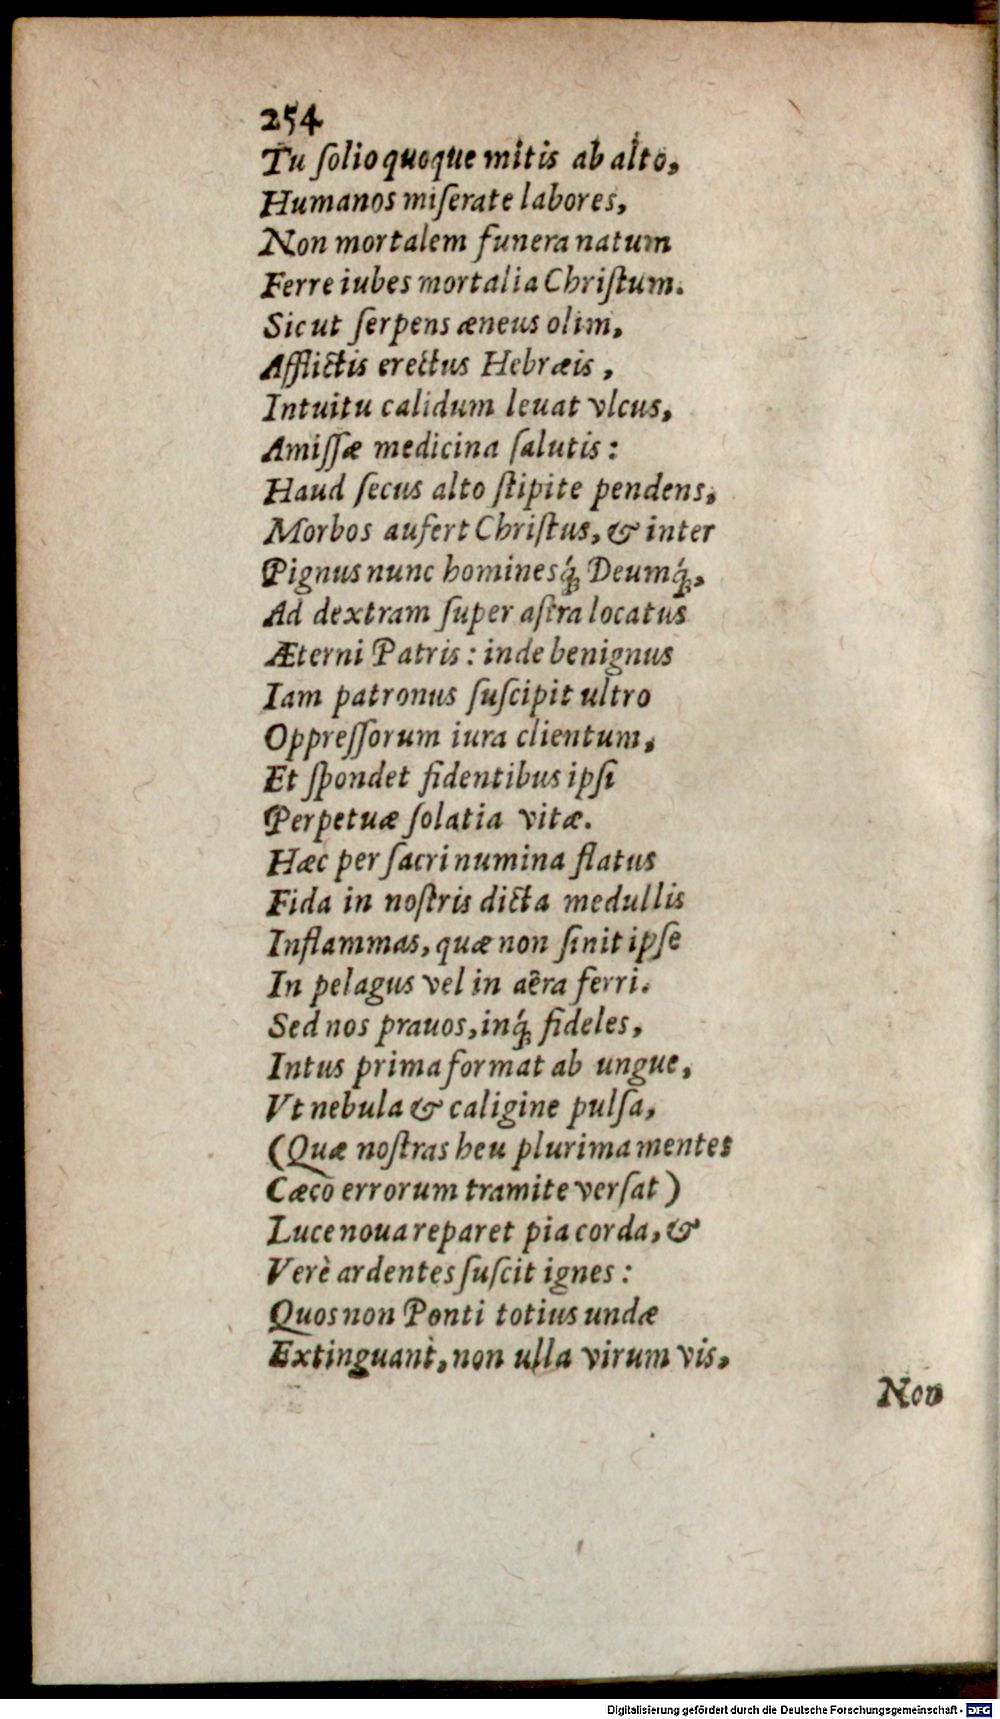 254
Tu ſolio quoque mitis ab alto,
Humanos miſerate labores,
Non mortalem funera natum
Ferre iubes mortalia Chriſtum.
Sic ut ſerpens æneus olim,
Afflictis erectus Hebræis,
Intuitu calidum leuat vlcus,
Amiſſæ medicina ſalutis:
Haud ſecus alto ſtipite pendens,
Morbos aufert Chriſtus, & inter
Pignus nunc hominesq́; Deumq́;,
Ad dextram ſuper aſtra locatus
Æterni Patris: inde benignus
Iam patronus ſuſcipit ultro
Oppreſſorum iura clientum,
Et ſpondet fidentibus ipſi
Perpetuæ ſolatia vitæ.
Hæc per ſacri numina flatus
Fida in noſtris dicta medullis
Inflammas, quæ non ſinit ipſe
In pelagus vel in aëra ferri.
Sed nos prauos, inq́; fideles,
Intus prima format ab ungue,
Vt nebula & caligine pulſa,
(Quæ noſtras heu plurima mentes
Cæco errorum tramite verſat)
Luce noua reparet pia corda, &
Verè ardentes ſuſcit ignes:
Quos non Ponti totius undæ
Extinguant, non ulla virum vis,
Non
Digitalisierung gefördert durch die Deutsche Forschungsgemeinschaft - DFG